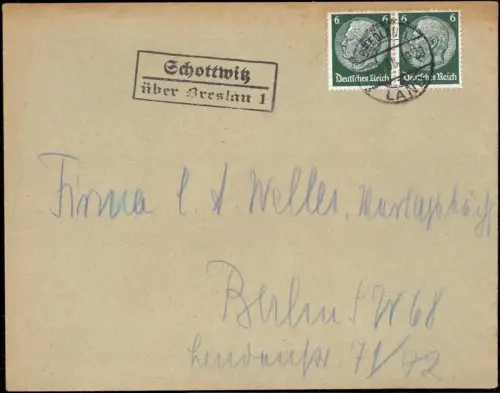 6 6
Deutsches Reich Deutsches Reich
LAND
Schottwitz
über Breslau 1
Firma C. A. Weller, Verlagsbuchh
Berlin SW 68
Lindenstr. 71/72